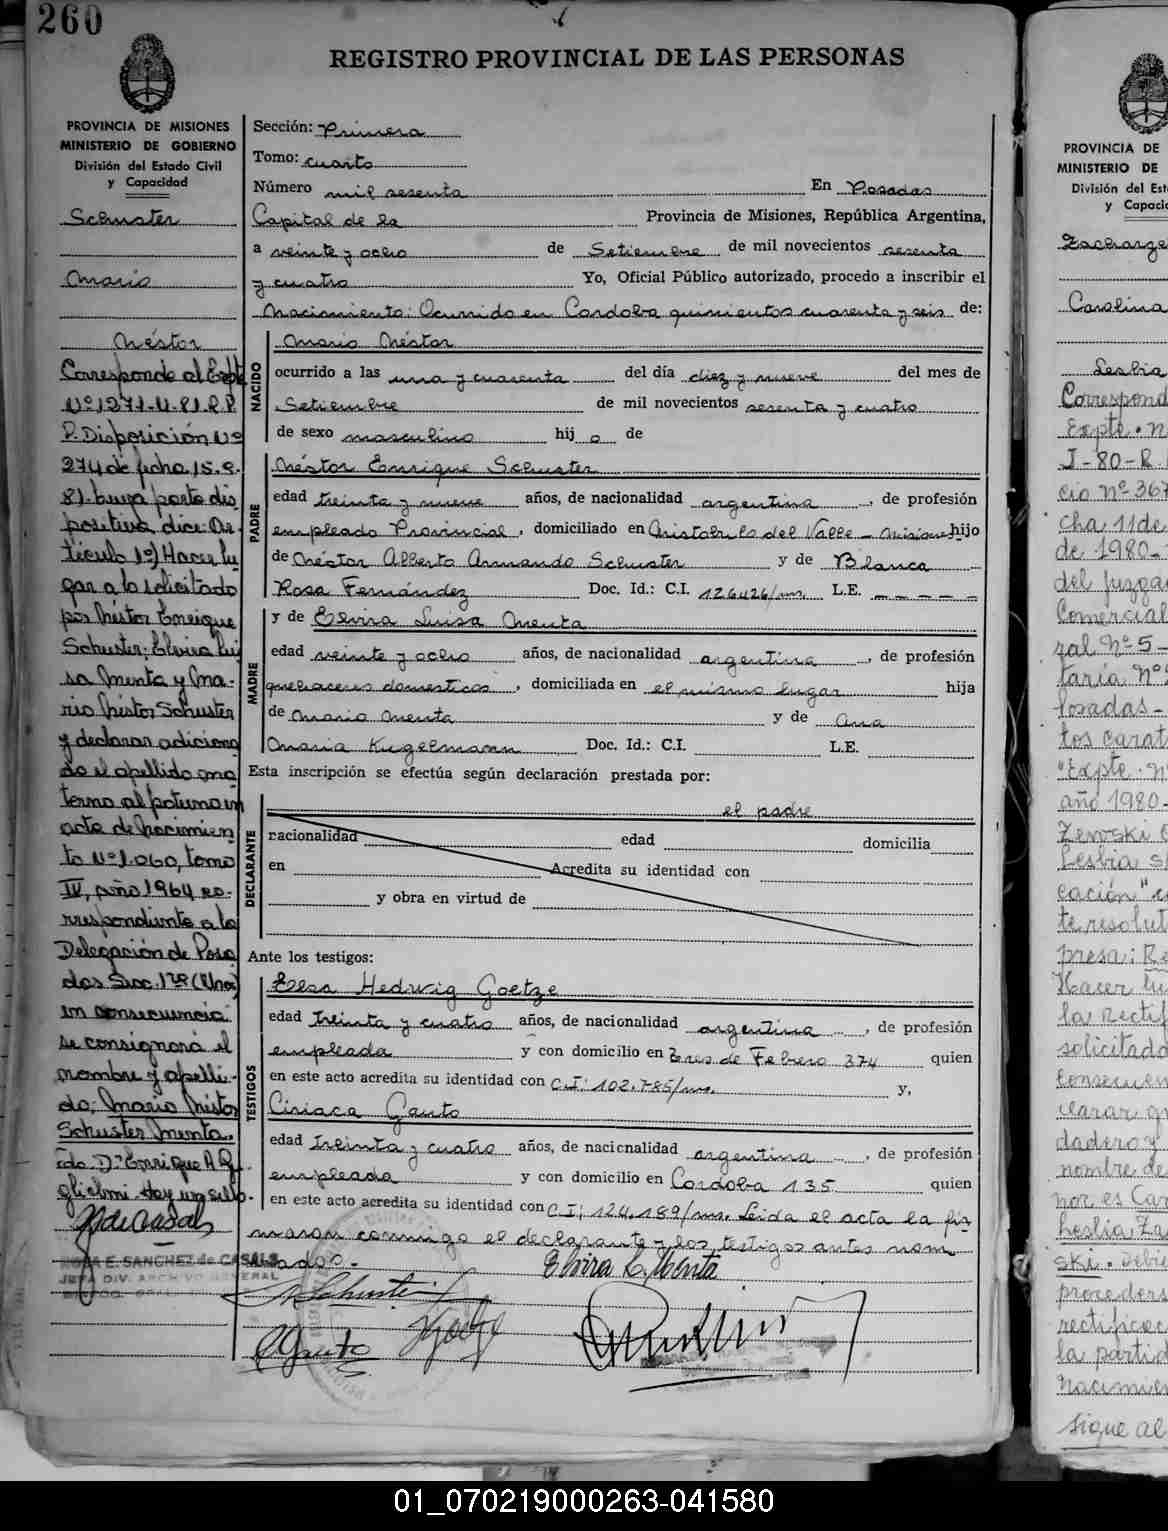 260
REGISTRO PROVINCIAL DE LAS PERSONAS
PROVINCIA DE MISIONES
MINISTERIO DE GOBIERNO
División del Estado Civil
y Capacidad
Schuster
Mario
Néstor
Corresponde al Expte
Nº 1271-U-81.R.P.
P. Disposición Nº
274 de fecha 15.9.
81. cuya parte dis
positiva dice: Ar-
tículo 1º) Hacer lu
gar a lo solicitado
por Néstor Enrique
Schuster; Elvira Lui
sa Menta y Ma-
rio Néstor Schuster
y declarar adiciona
do el apellido ma
terno al paterno en
acta de Nacimien
to Nº 1.060, tomo
IV, año 1964 co-
rrespondiente a la
Delegación de Posa
das Secc. 1ra (Una)
en consecuencia
se consignará el
nombre y apelli-
do: Mario Néstor
Schuster Menta.
Fdo. Dr Enrique A. Gu
glielmi. Hay un sello.
ROSA E. SANCHEZ de CASALS
JEFA DIV. ARCHIVO GENERAL
Sección: Primera
Tomo: cuarto
Número mil sesenta En Posadas
Capital de la Provincia de Misiones, República Argentina,
a veinte y ocho de Setiembre de mil novecientos sesenta
y cuatro Yo, Oficial Público autorizado, procedo a inscribir el
Nacimiento: Ocurrido en Cordoba quinientos cuarenta y seis de:
NACIDO
Mario Néstor
ocurrido a las una y cuarenta del día diez y nueve del mes de
Setiembre de mil novecientos sesenta y cuatro
de sexo masculino hij o de
PADRE
Néstor Enrique Schuster
edad treinta y nueve años, de nacionalidad argentina, de profesión
empleado Provincial, domiciliado en Aristobulo del Valle - Misiones hijo
de Néstor Alberto Armando Schuster y de Blanca
Rosa Fernández Doc. Id.: C.I. 126426/ms. L.E. - - - - -
MADRE
y de Elvira Luisa Menta
edad veinte y ocho años, de nacionalidad argentina, de profesión
quehaceres domesticos, domiciliada en el mismo lugar hija
de Mario Menta y de Ana
Maria Kugelmann Doc. Id.: C.I. L.E.
Esta inscripción se efectúa según declaración prestada por:
DECLARANTE
el padre
nacionalidad edad domicilia
en Acredita su identidad con
y obra en virtud de
Ante los testigos:
TESTIGOS
Elsa Hedwig Goetze
edad treinta y cuatro años, de nacionalidad argentina, de profesión
empleada y con domicilio en Tres de Febrero 374 quien
en este acto acredita su identidad con C.I: 102.785/ms. y,
Ciriaca Gauto
edad treinta y cuatro años, de nacionalidad argentina, de profesión
empleada y con domicilio en Cordoba 135 quien
en este acto acredita su identidad con C.I; 124.189/ms. Leida el acta la fir
maron conmigo el declarante y los testigos antes nom
brados.-
Elvira L. Menta
PROVINCIA DE
MINISTERIO DE
División del Est
y Capacid
Carolina
Lesbia
Correspond
Expte. N
J-80-R.
cio Nº 367
cha 11 de
de 1980-
del Juzga
Comercial
Posadas-
tos carat
"Expte. N
año 1980-
Lesbia S
te resolut
Hacer lu
la rectif
solicitado
Consecuen
clarar q
dadero y
nombre de
nor es Car
ski. Debie
procederse
rectificac
la partid
Nacimien
sigue al
01_070219000263-041580